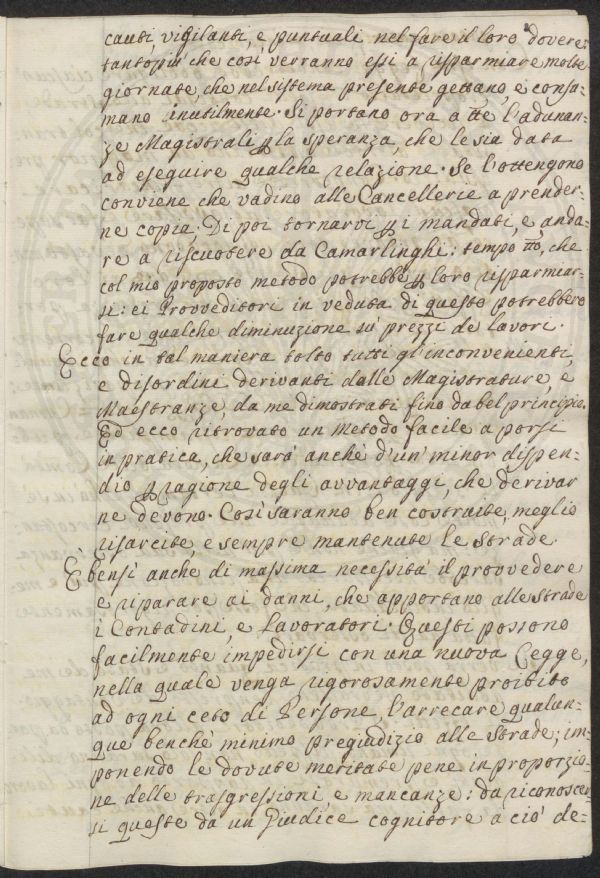 cauti, vigilanti, e puntuali nel fare il loro dovere:
tantopiù che così verranno essi a risparmiare molte
giornate, che nel sistema presente gettano, e consu-
mano inutilmente. Si portano ora a tte l'adunan-
ze Magistrali p la speranza, che le sia data
ad eseguire qualche relazione. Se l'ottengono
conviene che vadino alle Cancellerie a prender-
ne copia. Di poi tornarvi p i mandati, e anda-
re a riscuotere da Camarlinghi: tempo tto, che
col mio proposto metodo potrebbe p loro risparmiar-
si: ei Provveditori in veduta di questo potrebbero
fare qualche diminuzione su' prezzi de lavori.
Ecco in tal maniera tolto tutti gl'inconvenienti,
e disordini derivanti dalle Magistrature, e
Maestranze, da me dimostrati fino dabel principio.
Ed ecco ritrovato un metodo facile a porsi
in pratica, che sarà anche d'un minor dispen-
dio p ragione degli avvantaggi, che derivar
ne devono. Così saranno ben costruite, meglio
risarcite, e sempre mantenute le strade.
È bensì anche di massima necessità il provvedere
e riparare ai danni, che apportano alle strade
i Contadini, e Lavoratori. Questi possono
facilmente impedirsi con una nuova Legge,
nella quale venga rigorosamente proibito
ad ogni ceto di Persone, l'arrecare qualun-
que benchè minimo pregiudizio alle strade; im-
ponendo le dovute meritate pene in proporzio-
ne delle trasgressioni e mancanze: da riconoscer-
si queste da un Giudice cognitore a ciò de-